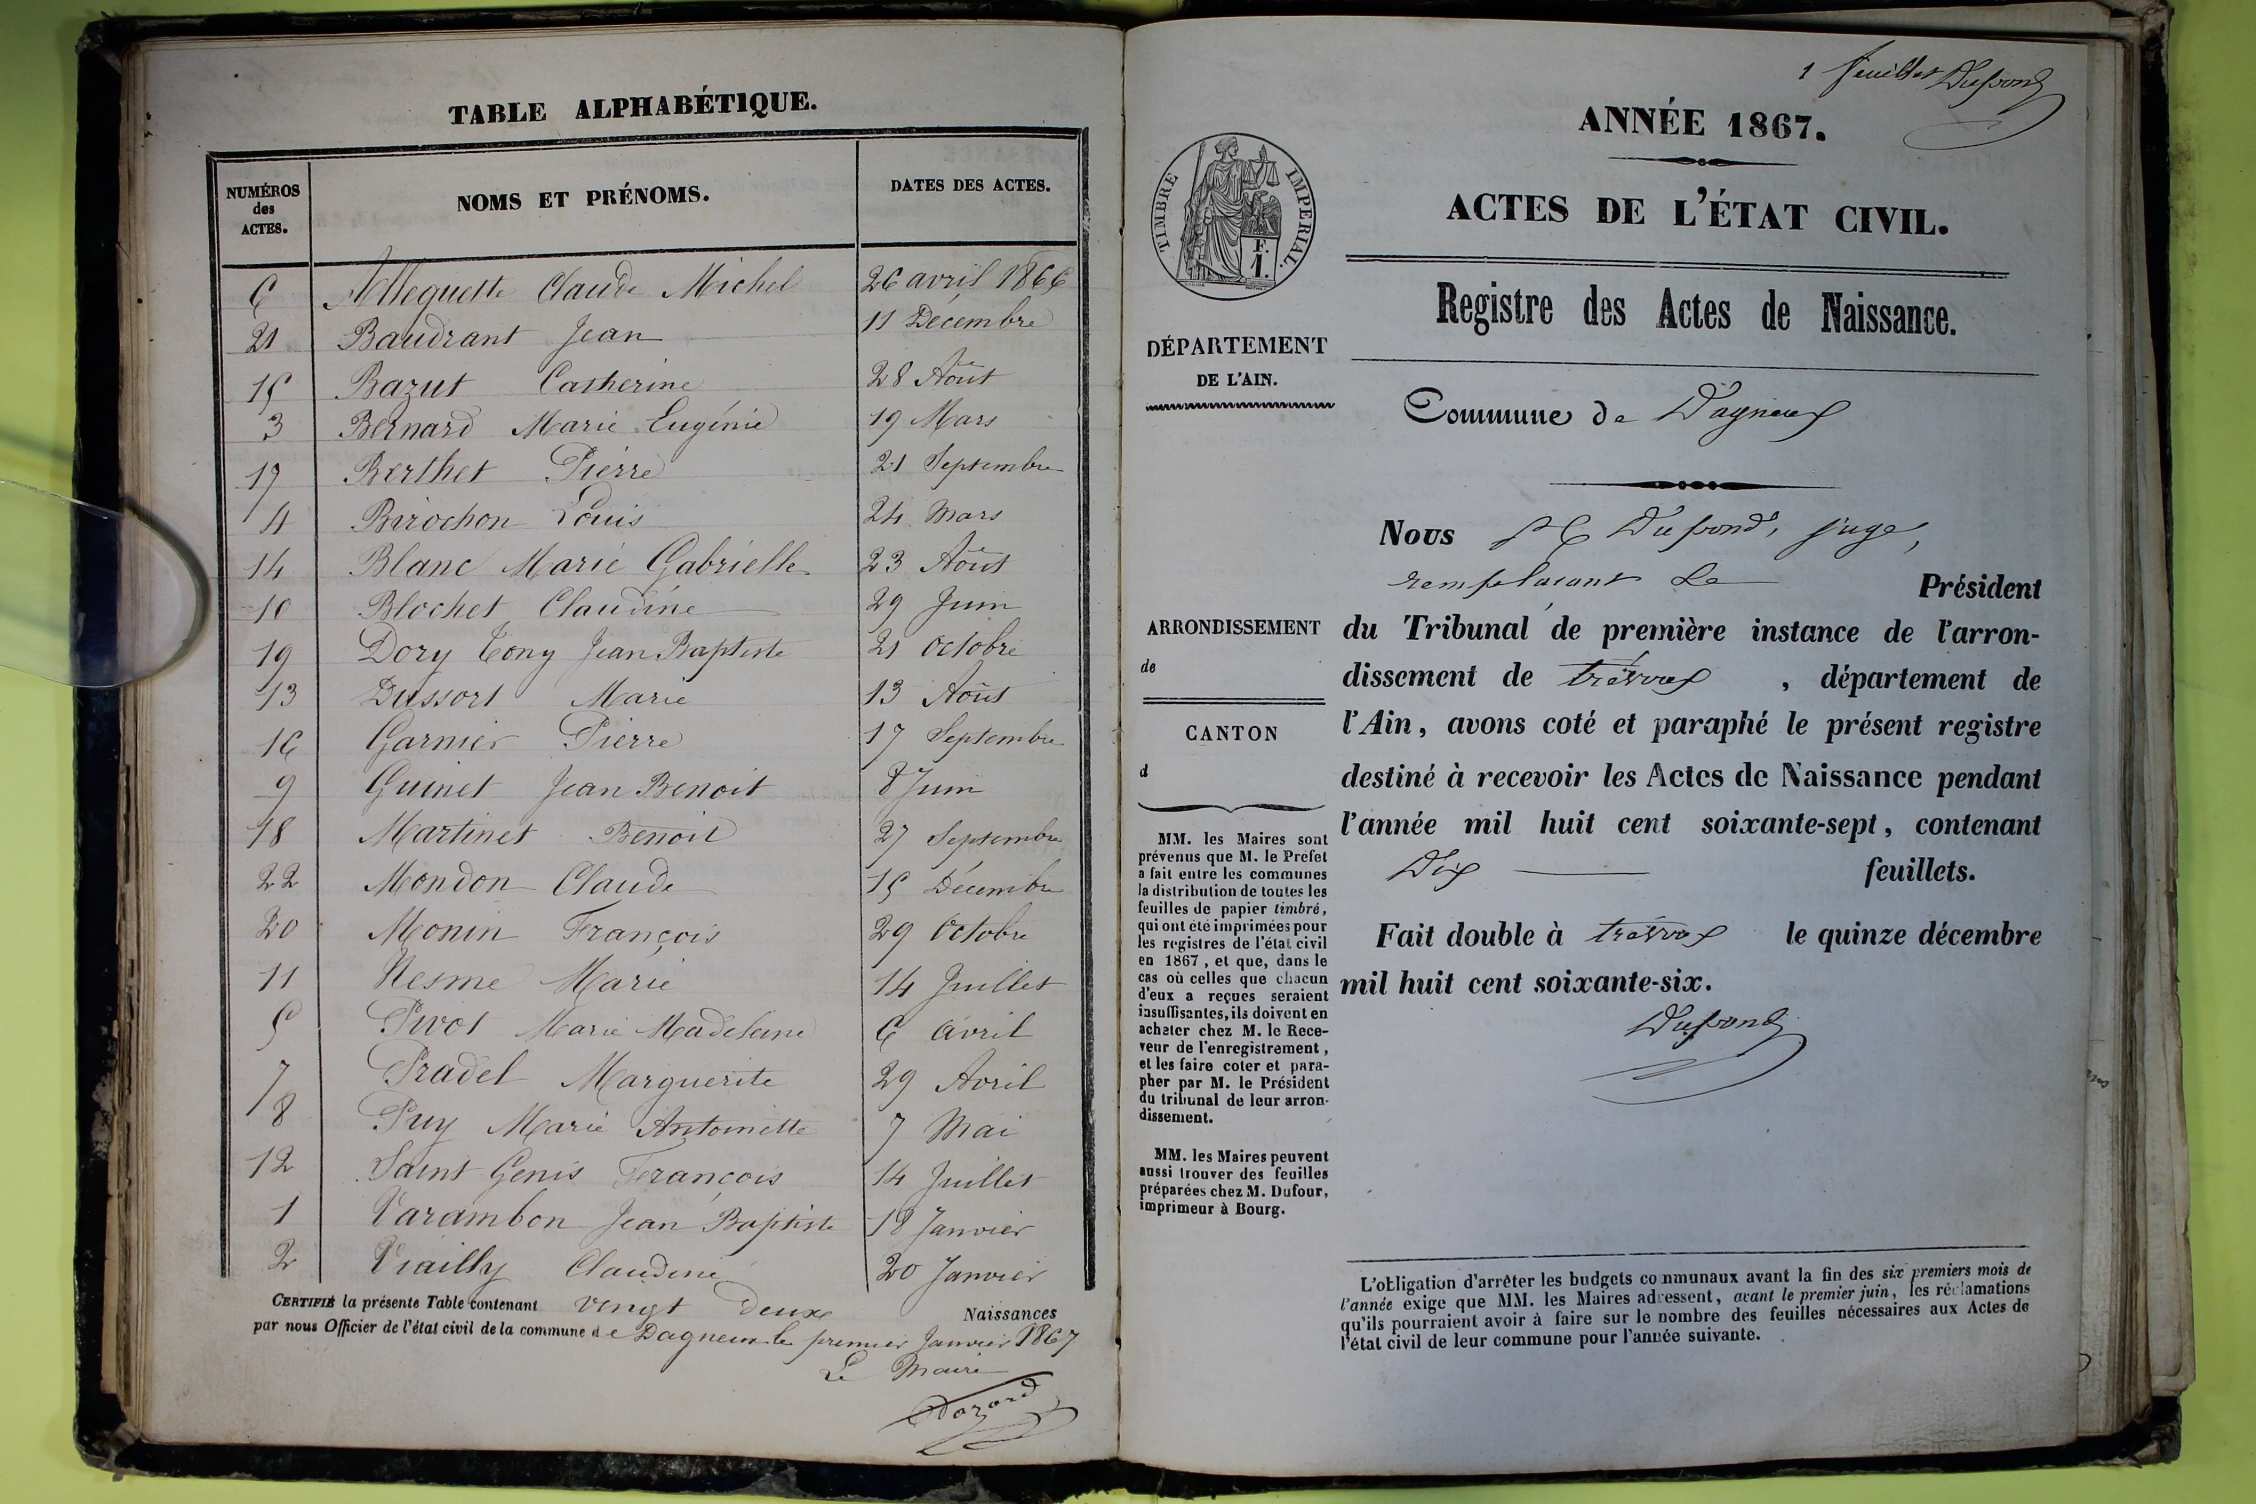 TABLE ALPHABÉTIQUE.
NUMÉROS des ACTES. NOMS ET PRÉNOMS. DATES DES ACTES.
6 Alleguette Claude Michel 26 avril 1866
21 Baudrant Jean 11 Décembre
15 Bazut Catherine 28 Août
3 Bernard Marie Eugénie 19 Mars
17 Berthet Pierre 21 Septembre
4 Birochon Louis 24 Mars
14 Blanc Marie Gabrielle 23 Août
10 Blochet Claudine 29 Juin
19 Dory Tony Jean Baptiste 21 Octobre
13 Dussort Marie 13 Août
16 Garnier Pierre 17 Septembre
9 Guinet Jean Benoit 8 Juin
18 Martinet Benoit 27 Septembre
22 Mondon Claude 15 Décembre
20 Monin François 29 Octobre
11 Nesme Marie 14 Juillet
5 Pivot Marie Madeleine 6 avril
7 Pradel Marguerite 29 Avril
8 Puy Marie Antoinette 7 Mai
12 Saint Genis François 14 Juillet
1 Varambon Jean Baptiste 18 Janvier
2 Viailly Claudine 20 Janvier
CERTIFIÉ la présente Table contenant vingt deux Naissances
par nous Officier de l'état civil de la commune de Dagneux le premier Janvier 1867
Le Maire
1 feuillet Dupond
ANNÉE 1867.
ACTES DE L'ÉTAT CIVIL.
TIMBRE IMPERIAL.
F.
1.
Registre des Actes de Naissance.
DÉPARTEMENT
DE L'AIN.
Commune de Dagneux
Nous Dupond, juge,
remplaçant le Président
ARRONDISSEMENT
de
CANTON
d
du Tribunal de première instance de l'arron-
dissement de trévoux , département de
l'Ain, avons coté et paraphé le présent registre
destiné à recevoir les Actes de Naissance pendant
l'année mil huit cent soixante-sept, contenant
Dix feuillets.
Fait double à trévoux le quinze décembre
mil huit cent soixante-six.
Dupond
MM. les Maires sont
prévenus que M. le Préfet
a fait entre les communes
la distribution de toutes les
feuilles de papier timbré,
qui ont été imprimées pour
les registres de l'état civil
en 1867, et que, dans le
cas où celles que chacun
d'eux a reçues seraient
insuffisantes, ils doivent en
acheter chez M. le Rece-
veur de l'enregistrement,
et les faire coter et para-
pher par M. le Président
du tribunal de leur arron-
dissement.
MM. les Maires peuvent
aussi trouver des feuilles
préparées chez M. Dufour,
imprimeur à Bourg.
L'obligation d'arrêter les budgets communaux avant la fin des six premiers mois de
l'année exige que MM. les Maires adressent, avant le premier juin, les réclamations
qu'ils pourraient avoir à faire sur le nombre des feuilles nécessaires aux Actes de
l'état civil de leur commune pour l'année suivante.